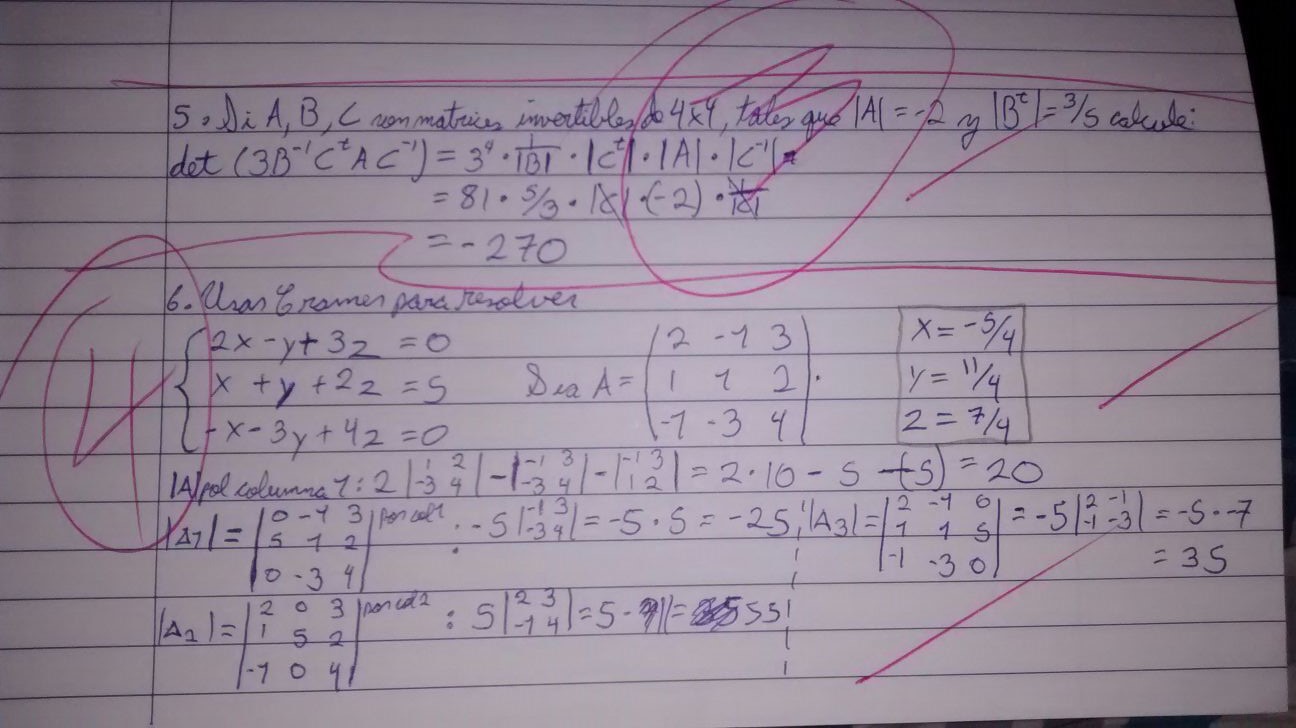 5. Si A, B, C son matrices invertibles de 4x4, tales que |A| = -2 y |Bᵗ| = 3/5 calcule:
det (3B⁻¹ Cᵗ A C⁻¹) = 3⁴ · 1/|B| · |Cᵗ| · |A| · |C⁻¹| =
= 81 · 5/3 · |C| · (-2) · 1/|C|
= -270
4
6. Usar Cramer para resolver
{ 2x - y + 3z = 0
x + y + 2z = 5
-x - 3y + 4z = 0
Sea A = ( 2 -1 3
1 1 2
-1 -3 4 ).
x = -5/4
y = 11/4
z = 7/4
|A| por columna 1: 2 |1 2; -3 4| - |-1 3; -3 4| - |-1 3; 1 2| = 2·10 - 5 - (-5) = 20
|A1| = |0 -1 3; 5 1 2; 0 -3 4| por col1 : -5 |-1 3; -3 4| = -5 · 5 = -25
|A3| = |2 -1 0; 1 1 5; -1 -3 0| = -5 |2 -1; -1 -3| = -5 · -7
= 35
|A2| = |2 0 3; 1 5 2; -1 0 4| por col 2 : 5 |2 3; -1 4| = 5 · 11 = 55